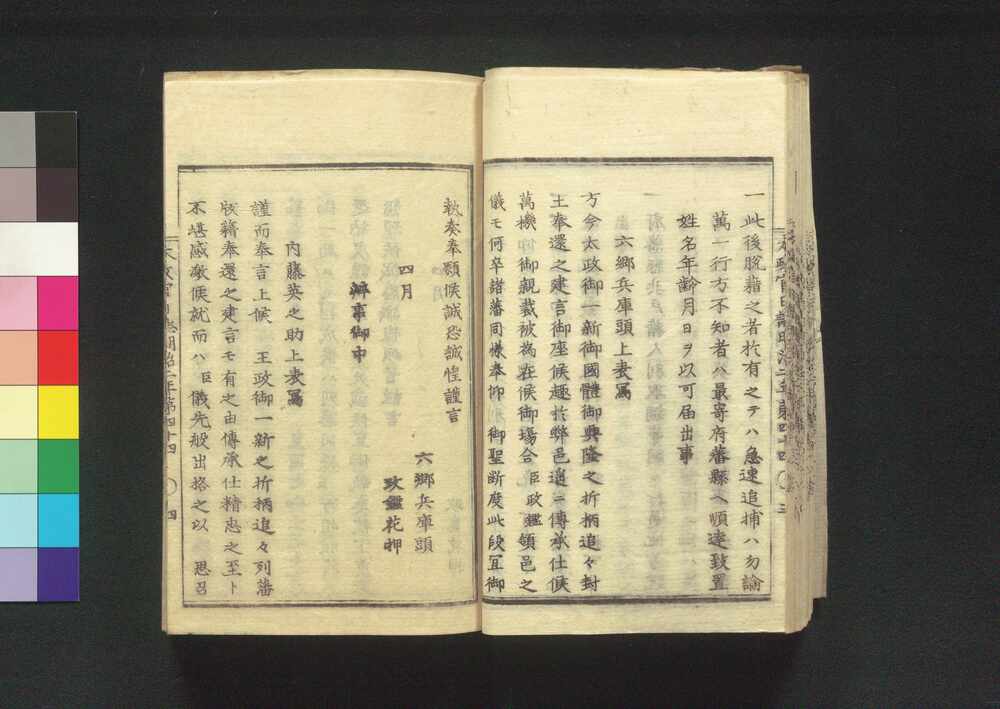 一此後脱籍之者於有之テハ急速追捕ハ勿論
萬一行方不知者ハ最寄府藩縣ヘ順達致置
姓名年齡月日ヲ以可届出事
六鄕兵庫頭上表寫
方今太政御一新御國體御興隆之折柄追々封
王奉還之建言御座候趣於弊邑遙ニ傳承仕候
萬機御親裁被為在候御場合臣政鑑領邑之
儀モ何卒諸藩同様奉仰御聖断度此段冝御
執奏奉願候誠恐誠惶謹言
四月
六鄕兵庫頭
政鑑花押
辨事御中
内藤英之助上表寫
謹而奉言上候王政御一新之折柄追々列藩
版籍奉還之建言モ有之由傳承仕精忠之至ト
不堪感激候就而ハ臣儀先般出格之以思召
太政官日誌明治二年第四十四
四